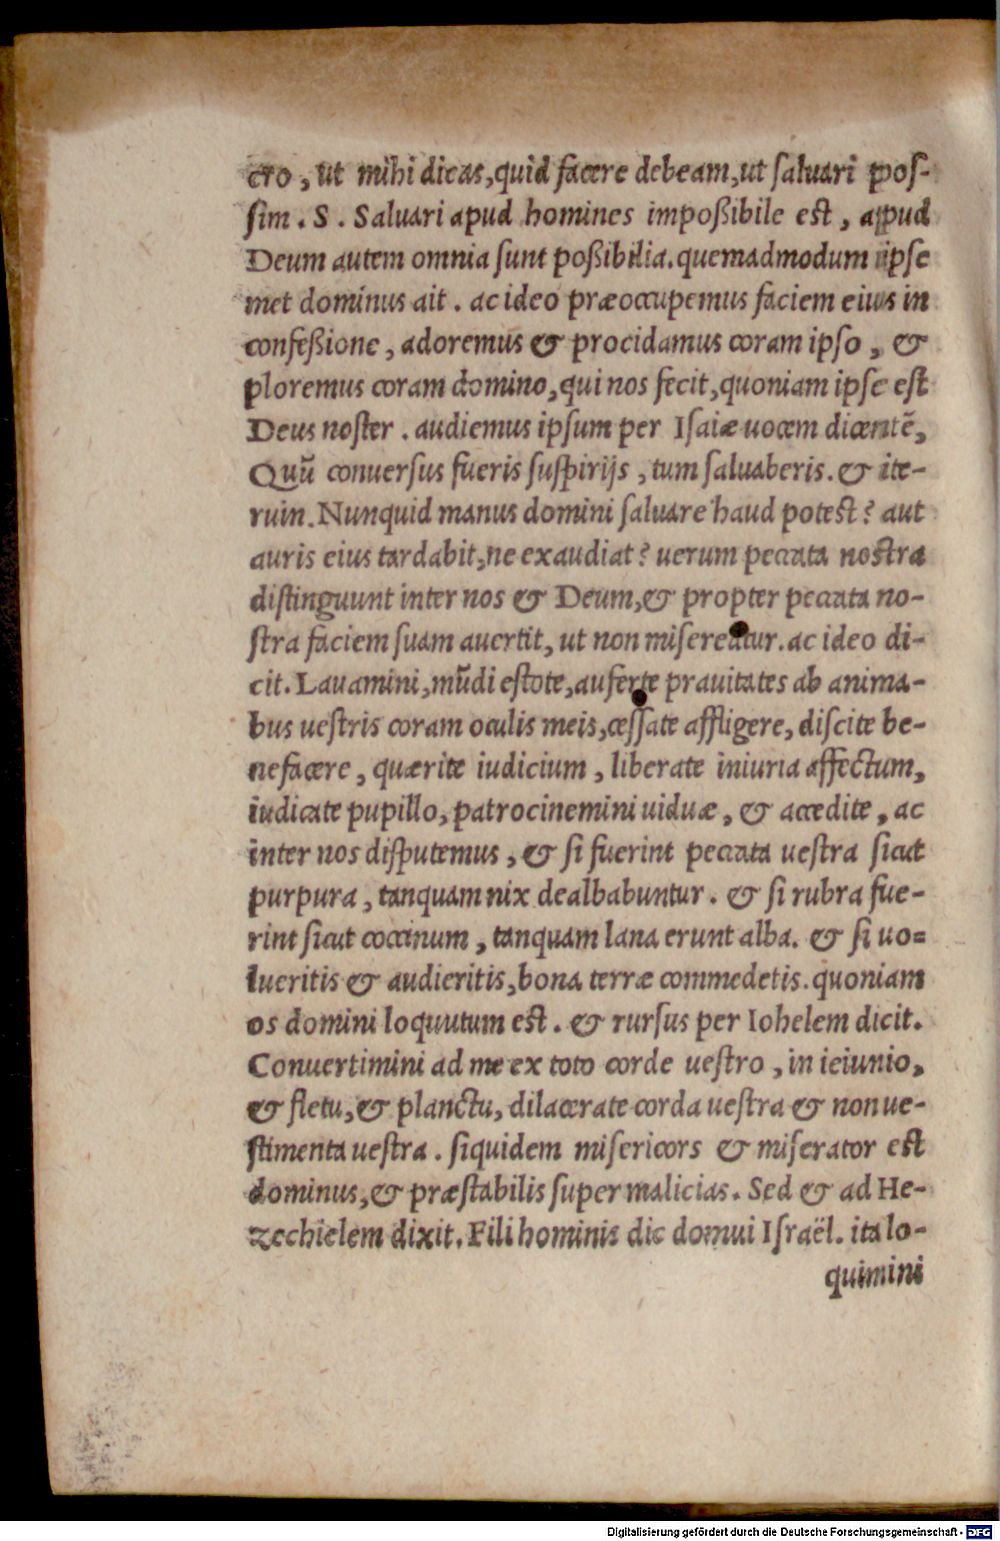 cro, ut mihi dicas, quid facere debeam, ut saluari pos-
sim. S. Saluari apud homines impoßibile est, apud
Deum autem omnia sunt poßibilia. quemadmodum ipse
met dominus ait. ac ideo præoccupemus faciem eius in
confeßione, adoremus & procidamus coram ipso, &
ploremus coram domino, qui nos fecit, quoniam ipse est
Deus noster. audiemus ipsum per Isaiæ uocem dicentē,
Quū conuersus fueris suspirijs, tum saluaberis. & ite-
ruin. Nunquid manus domini saluare haud potest? aut
auris eius tardabit, ne exaudiat? uerum peccata nostra
distinguunt inter nos & Deum, & propter peccata no-
stra faciem suam auertit, ut non misereatur. ac ideo di-
cit. Lauamini, mūdi estote, auferte prauitates ab anima-
bus uestris coram oculis meis, cessate affligere, discite be-
nefacere, quærite iudicium, liberate iniuria affectum,
iudicate pupillo, patrocinemini uiduæ, & accedite, ac
inter nos disputemus, & si fuerint peccata uestra sicut
purpura, tanquam nix dealbabuntur. & si rubra fue-
rint sicut coccinum, tanquam lana erunt alba. & si uo=
lueritis & audieritis, bona terræ commedetis. quoniam
os domini loquutum est. & rursus per Iohelem dicit.
Conuertimini ad me ex toto corde uestro, in ieiunio,
& fletu, & planctu, dilacerate corda uestra & non ue-
stimenta uestra. siquidem misericors & miserator est
dominus, & præstabilis super malicias. Sed & ad He-
zechielem dixit. Fili hominis dic domui Israël. ita lo-
quimini
Digitalisierung gefördert durch die Deutsche Forschungsgemeinschaft - DFG